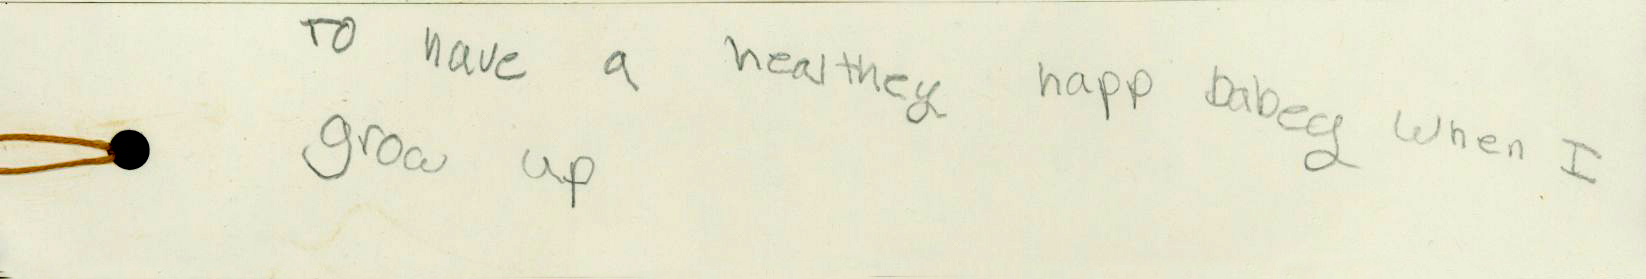 To have a healthey happ babey when I
grow up